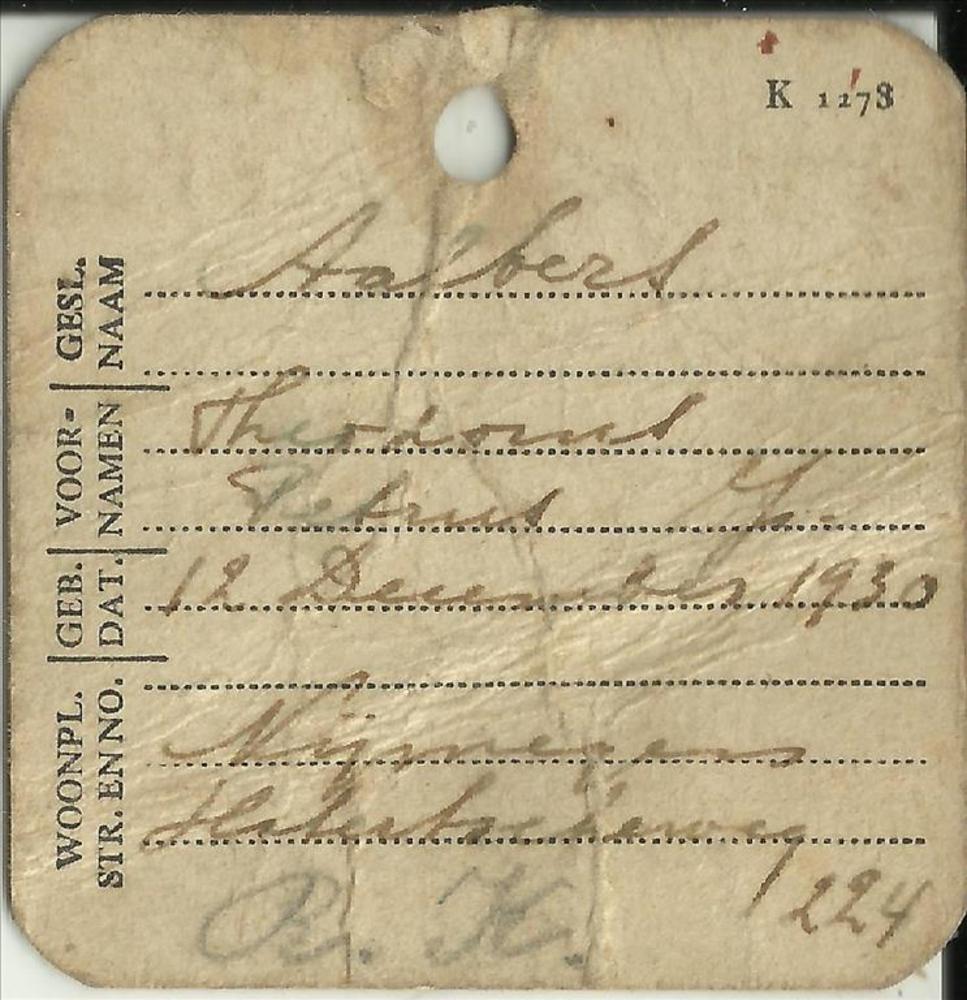 K 1278
GESL. NAAM
Aalbers
VOOR- NAMEN
Theodorus
Petrus J.
GEB. DAT.
12 December 1930
WOONPL. STR. EN NO.
Nijmegen
Hatertscheweg
224
R. K.